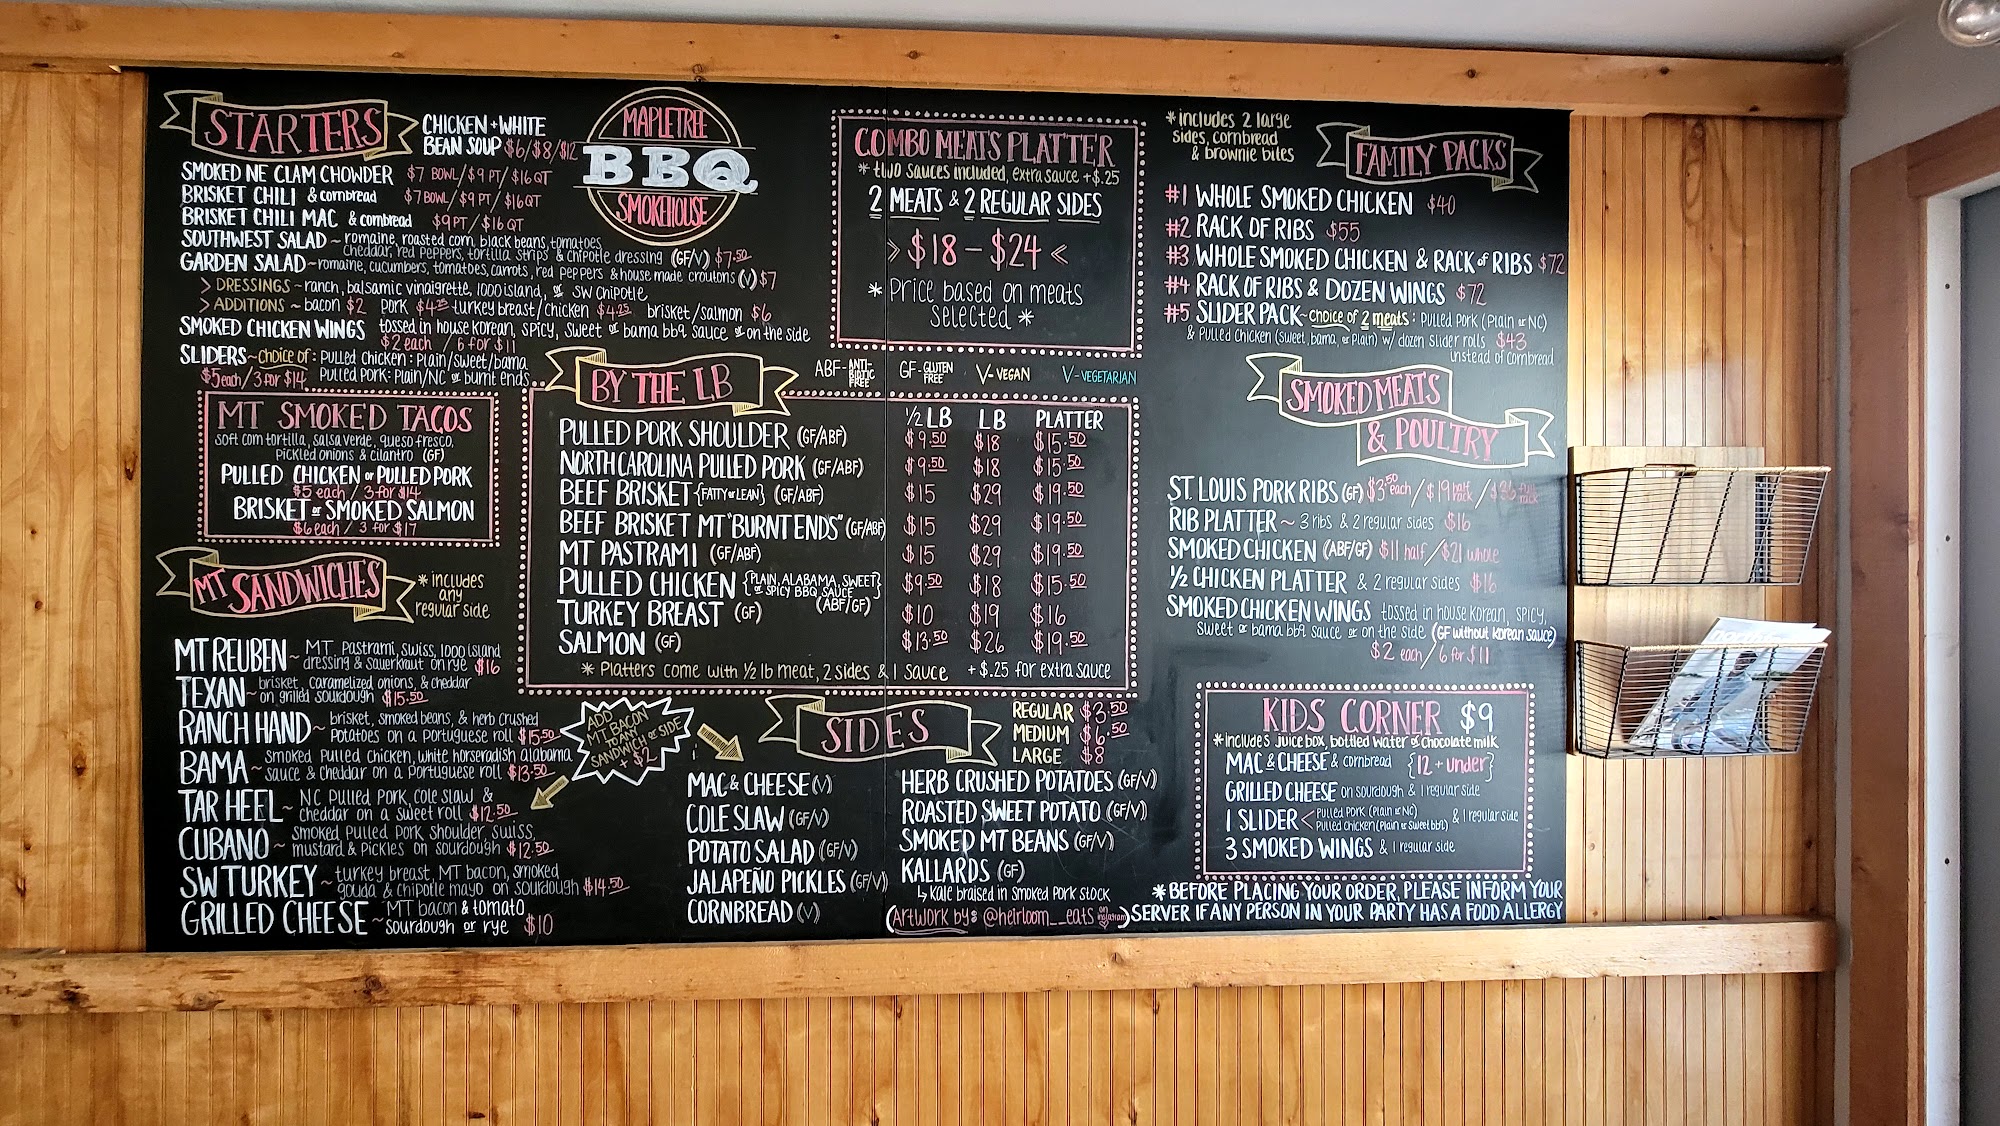 STARTERS
CHICKEN + WHITE
BEAN SOUP $6/$8/$12
SMOKED NE CLAM CHOWDER $7 BOWL/$9 PT/$16 QT
BRISKET CHILI & cornbread $7 BOWL/$9 PT/$16 QT
BRISKET CHILI MAC & cornbread $9 PT/$16 QT
SOUTHWEST SALAD ~ romaine, roasted corn, black beans, tomatoes,
cheddar, red peppers, tortilla strips & chipotle dressing (GF/V) $7.50
GARDEN SALAD ~ romaine, cucumbers, tomatoes, carrots, red peppers & house made croutons (V) $7
> DRESSINGS ~ ranch, balsamic vinaigrette, 1000 island, or SW Chipotle
> ADDITIONS ~ bacon $2 pork $4.25 turkey breast/chicken $4.25 brisket/salmon $6
SMOKED CHICKEN WINGS tossed in house Korean, spicy, sweet or bama bbq sauce or on the side
$2 each / 6 for $11
SLIDERS ~ choice of: pulled chicken: plain/sweet/bama
$5 each / 3 for $14 Pulled Pork: Plain/NC or burnt ends
MAPLETREE
BBQ
SMOKEHOUSE
MT SMOKED TACOS
soft corn tortilla, salsa verde, queso fresco,
pickled onions & cilantro (GF)
PULLED CHICKEN or PULLED PORK
$5 each / 3 for $14
BRISKET or SMOKED SALMON
$6 each / 3 for $17
MT SANDWICHES
*includes
any
regular side
MT REUBEN ~ MT Pastrami, swiss, 1000 island
dressing & sauerkraut on rye $16
TEXAN ~ brisket, caramelized onions, & cheddar
on grilled sourdough $15.50
RANCH HAND ~ brisket, smoked beans, & herb crushed
potatoes on a Portuguese roll $15.50
BAMA ~ smoked pulled chicken, white horseradish alabama
sauce & cheddar on a Portuguese roll $13.50
TAR HEEL ~ NC pulled pork, cole slaw &
cheddar on a sweet roll $12.50
CUBANO ~ smoked pulled pork shoulder, swiss,
mustard & pickles on sourdough $12.50
SW TURKEY ~ turkey breast, MT bacon, smoked
gouda & chipotle mayo on sourdough $14.50
GRILLED CHEESE ~ MT bacon & tomato
sourdough or rye $10
ADD
MT BACON
TO ANY
SANDWICH or SIDE
+ $2
COMBO MEATS PLATTER
* two sauces included, extra sauce +$.25
2 MEATS & 2 REGULAR SIDES
> $18 - $24 <
* Price based on meats
selected *
ABF-ANTI-BIOTIC FREE GF-GLUTEN FREE V-VEGAN V-VEGETARIAN
BY THE LB
½ LB LB PLATTER
PULLED PORK SHOULDER (GF/ABF) $9.50 $18 $15.50
NORTH CAROLINA PULLED PORK (GF/ABF) $9.50 $18 $15.50
BEEF BRISKET {FATTY or LEAN} (GF/ABF) $15 $29 $19.50
BEEF BRISKET MT "BURNT ENDS" (GF/ABF) $15 $29 $19.50
MT PASTRAMI (GF/ABF) $15 $29 $19.50
PULLED CHICKEN {PLAIN, ALABAMA, SWEET or SPICY BBQ SAUCE} (ABF/GF) $9.50 $18 $15.50
TURKEY BREAST (GF) $10 $19 $16
SALMON (GF) $13.50 $26 $19.50
* Platters come with ½ lb meat, 2 sides & 1 sauce + $.25 for extra sauce
SIDES
REGULAR $3.50
MEDIUM $6.50
LARGE $8
MAC & CHEESE (V)
COLE SLAW (GF/V)
POTATO SALAD (GF/V)
JALAPEÑO PICKLES (GF/V)
CORNBREAD (V)
HERB CRUSHED POTATOES (GF/V)
ROASTED SWEET POTATO (GF/V)
SMOKED MT BEANS (GF/V)
KALLARDS (GF)
↳ Kale braised in smoked pork stock
(Artwork by: @heirloom__eats on instagram)
*includes 2 large
sides, cornbread
& brownie bites
FAMILY PACKS
#1 WHOLE SMOKED CHICKEN $40
#2 RACK OF RIBS $55
#3 WHOLE SMOKED CHICKEN & RACK of RIBS $72
#4 RACK OF RIBS & DOZEN WINGS $72
#5 SLIDER PACK ~ choice of 2 meats: Pulled Pork (Plain or NC)
& Pulled Chicken (sweet, bama, or Plain) w/ dozen slider rolls $43
instead of cornbread
SMOKED MEATS
& POULTRY
ST. LOUIS PORK RIBS (GF) $3.50 each / $19 half rack / $36 full rack
RIB PLATTER ~ 3 ribs & 2 regular sides $16
SMOKED CHICKEN (ABF/GF) $11 half / $21 whole
½ CHICKEN PLATTER & 2 regular sides $16
SMOKED CHICKEN WINGS tossed in house Korean, spicy,
sweet or bama bbq sauce or on the side (GF without korean sauce)
$2 each / 6 for $11
KIDS CORNER $9
*includes juice box, bottled water or chocolate milk
MAC & CHEESE & cornbread {12 + under}
GRILLED CHEESE on sourdough & 1 regular side
1 SLIDER < Pulled Pork (Plain or NC) & 1 regular side
Pulled Chicken (Plain or sweet bbq)
3 SMOKED WINGS & 1 regular side
*BEFORE PLACING YOUR ORDER, PLEASE INFORM YOUR
SERVER IF ANY PERSON IN YOUR PARTY HAS A FOOD ALLERGY